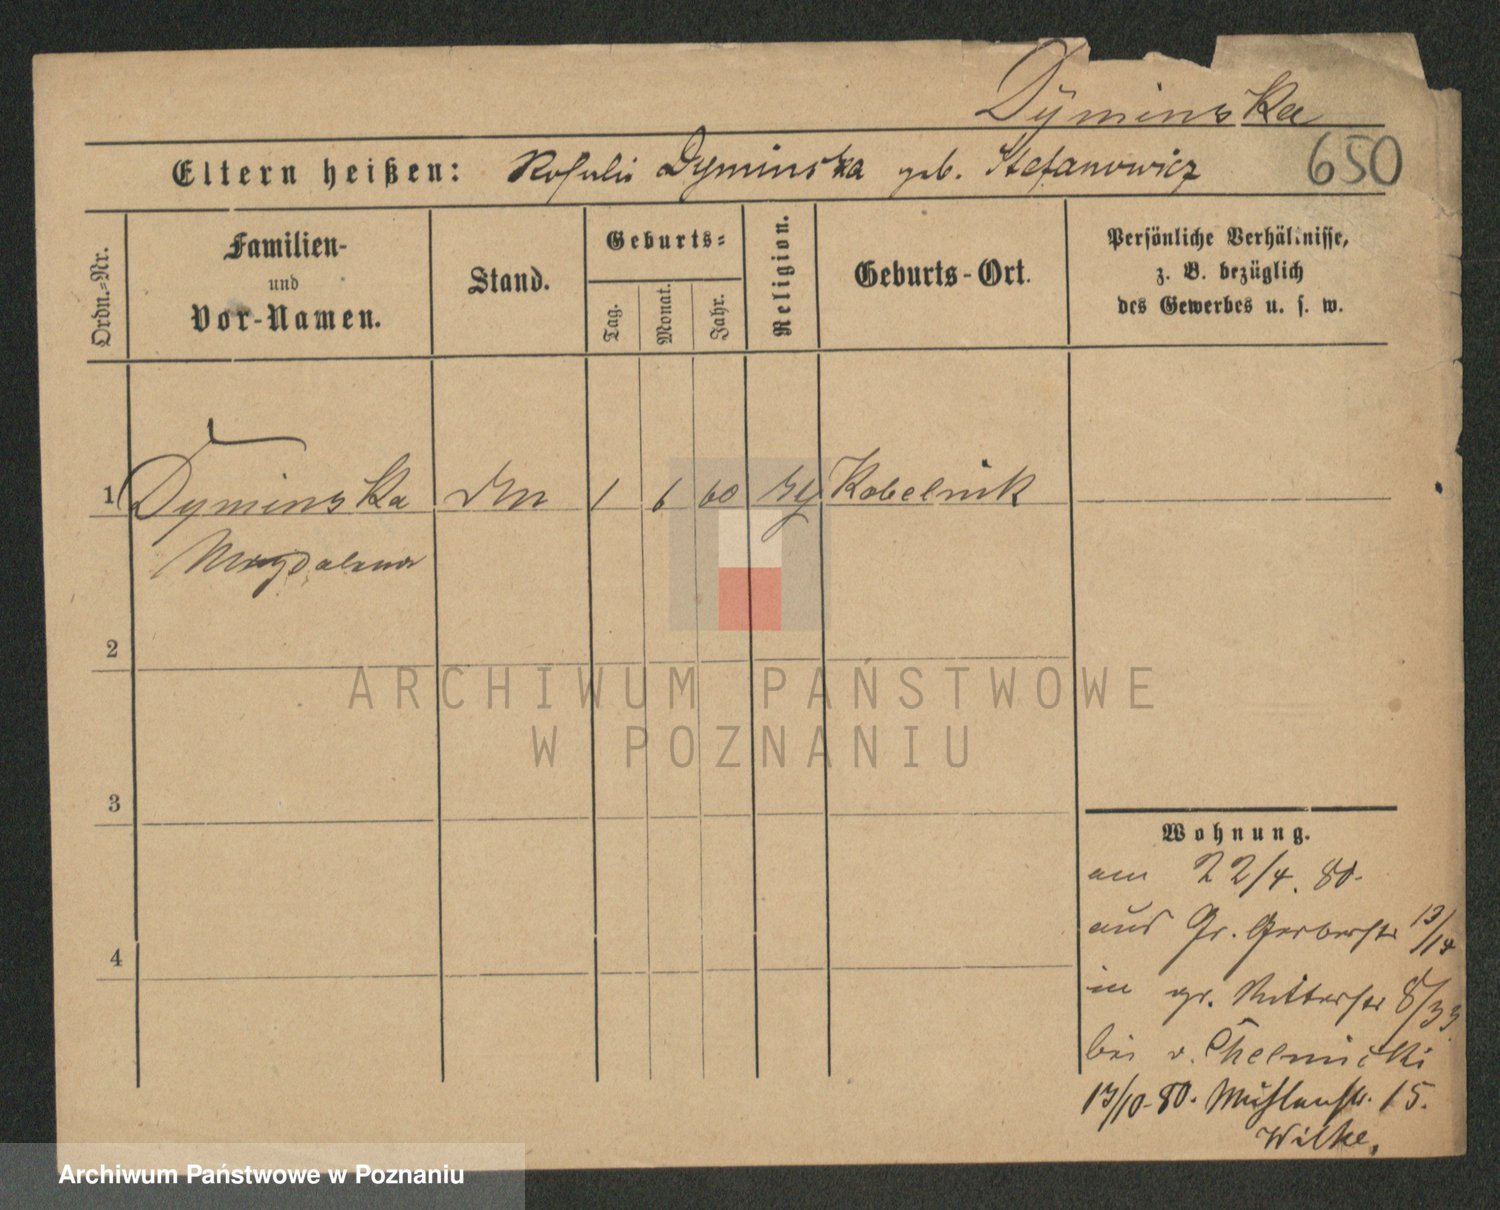 Dyminska
Eltern heißen: Rosalie Dyminska geb. Stefanowicz
650
Ordn.=Nr.
Familien-
und
Vor-Namen.
Stand.
Geburts=
Tag.
Monat.
Jahr.
Religion.
Geburts-Ort.
Persönliche Verhältnisse,
z. B. bezüglich
des Gewerbes u. s. w.
1 Dyminska 1 6 60 Kobelnik
Magdalena
2
3
4
ARCHIWUM PAŃSTWOWE
W POZNANIU
Wohnung.
am 22/4. 80.
aus Gr. Gerberstr
in gr. Ritterstr 8/33
bei v. Chelmicki
Mühlenstr. 15.
Wilke.
Archiwum Państwowe w Poznaniu